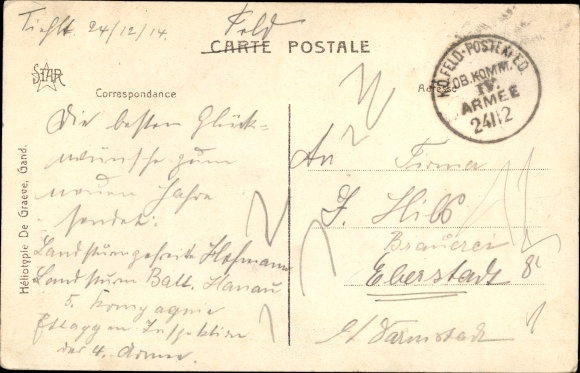 Tielt. 24/12/14.
Feld
CARTE POSTALE
STAR
Correspondance
Adresse
K.D. FELD-POSTEXPED.
OB. KOMM.
IV.
ARMEE
24/12
Die besten Glück-
wünsche zum
neuen Jahre
sendet:
Landsturmgefreite Hofmann
Landsturm Batl. Hanau
5. Kompagnie
Etappen Inspektion
der 4. Armee.
An Firma
J. Hill
Brauerei
Eberstadt
b/ Darmstadt
Héliotypie De Graeve, Gand.